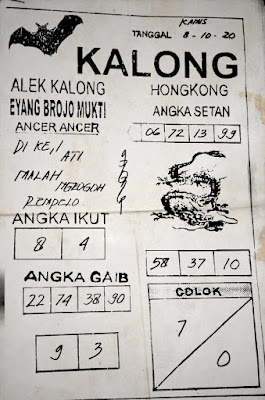 KAMIS
TANGGAL 8-10-20
KALONG
ALEK KALONG
EYANG BROJO MUKTI
ANCER ANCER
DI KE,I
ATI
MALAH
REMPELO
ANGKA IKUT
8 4
ANGKA GAIB
22 74 38 90
9 3
HONGKONG
ANGKA SETAN
06 72 13 99
58 37 10
COLOK
7
0